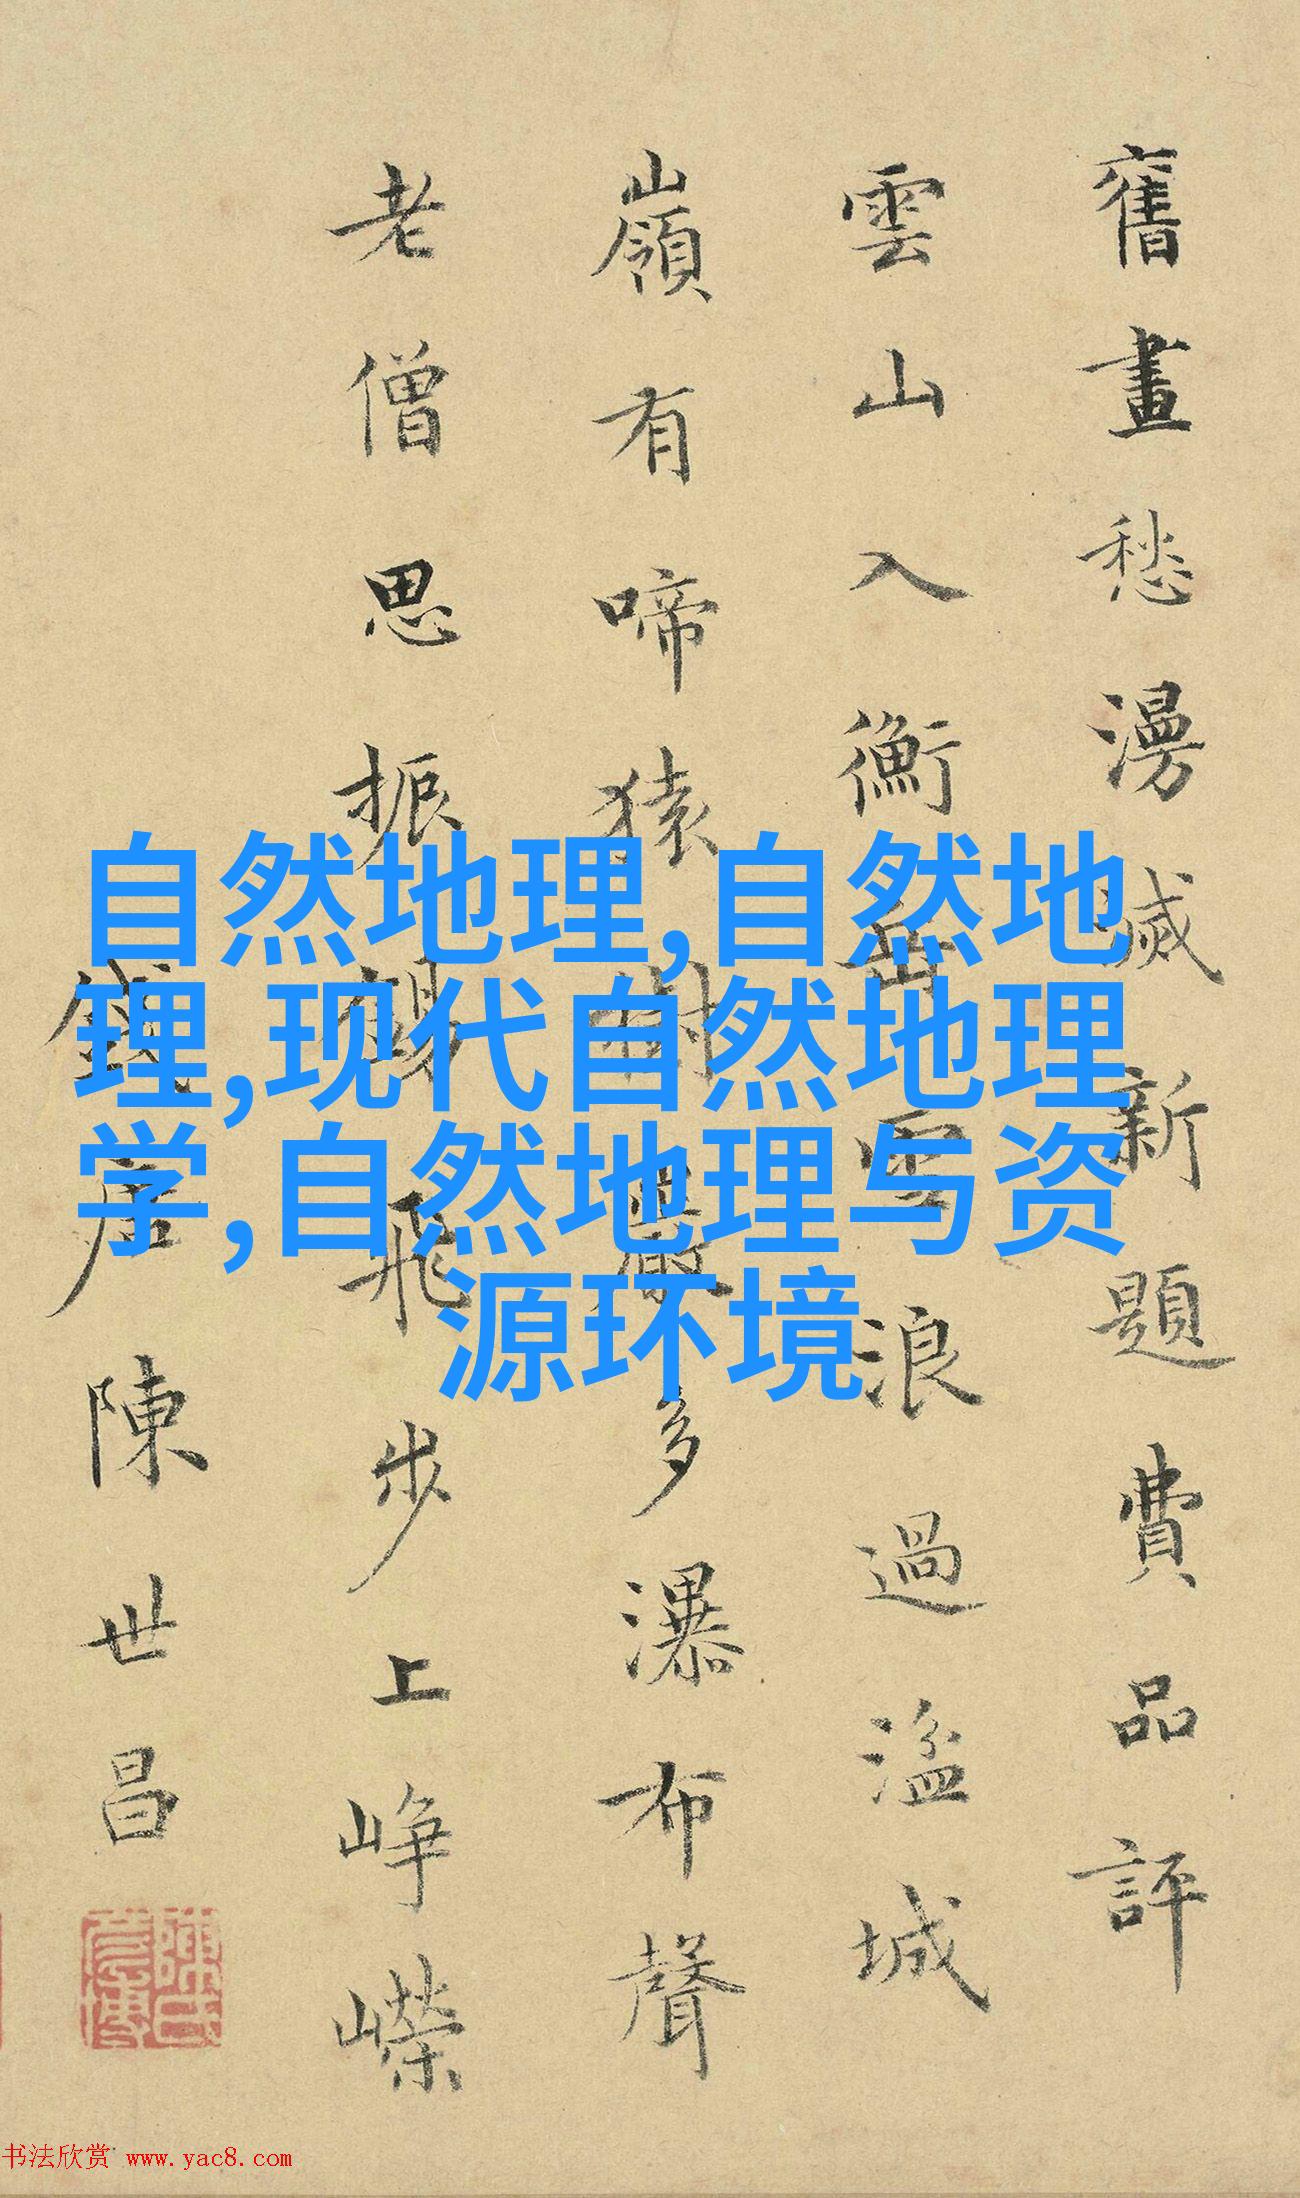 舊畫愁漫滅新題費品評
雲山入衡岳雲浪過湓城
嶺有啼猿樹巖多瀑布聲
老僧思振錫飛步上崢嶸
錢唐陳世昌
自然地理,自然地
理,现代自然地理
学,自然地理与资
源环境
书法欣赏 www.yac8.com